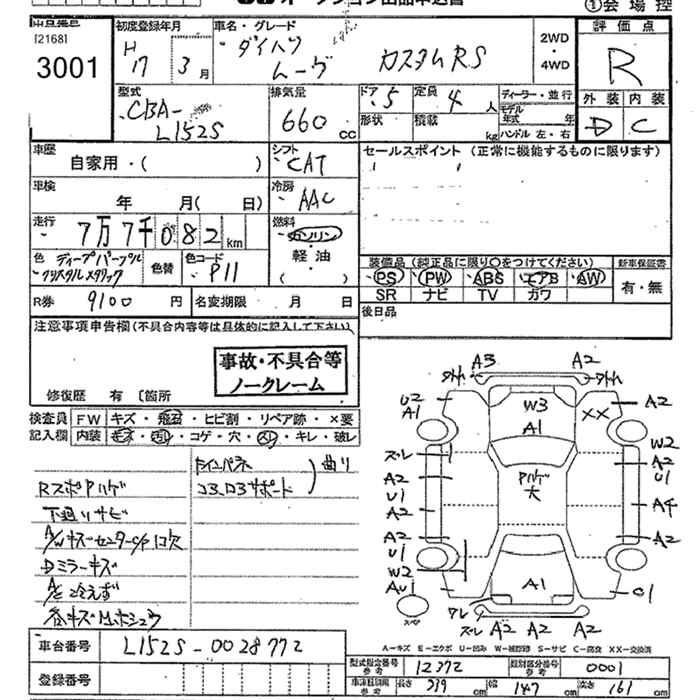 ①会場控
[2168]
3001
初度登録年月
H
17 年 3 月
車名・グレード
ダイハツ
ムーヴ
カスタムRS
2WD
・
4WD
評価点
R
外装 内装
D C
型式
CBA-
L152S
排気量
660 cc
ドア 5
定員 4 人
形状
積載 kg
ディーラー・並行
モデル年式 年
ハンドル 左・右
車歴
自家用・( )
シフト
CAT
セールスポイント (正常に機能するものに限ります)
車検
年 月( 日)
冷房
AAC
走行
7万7千082km
燃料
ガソリン
・
軽・油
( )
色
ディープパープル
クリスタルメタリック
色替
色コード
P11
装備品(純正品に限り○をつけてください)
PS PW ABS エアB AW
SR ナビ TV カワ
新車保証書
有・無
R券 9100 円
名変期限 月 日
後日品
注意事項申告欄(不具合内容等は具体的に記入して下さい)
事故・不具合等
ノークレーム
修復歴 有 〔箇所
検査員
記入欄
FW キズ・飛石・ヒビ割・リペア跡・×要
内装 キズ・汚れ・コゲ・穴・スレ・キレ・破レ
RスポPハゲ
下廻りサビ
A/Wキズ センターC/P 1コ欠
Dミラーキズ
A/C冷えず
曲り
A3 A2
外れ 外れ
U2
A1
W3
A1
XX
A2
W2
ズレ
A2
U1
A2
A2
U1
W2
Pハゲ
大
A2
U1
A4
A2
A1
C1
スペア
ズレ A2 A2 A2
A-キズ E-エクボ U-凹み W-補修跡 S-サビ C-腐食 XX-交換済
車台番号 L152S-0028772
登録番号
型式指定番号
参考
12372
類別区分番号
参考
0001
車検証記載
参考
長さ 339 cm
幅 147 cm
高さ 161 cm